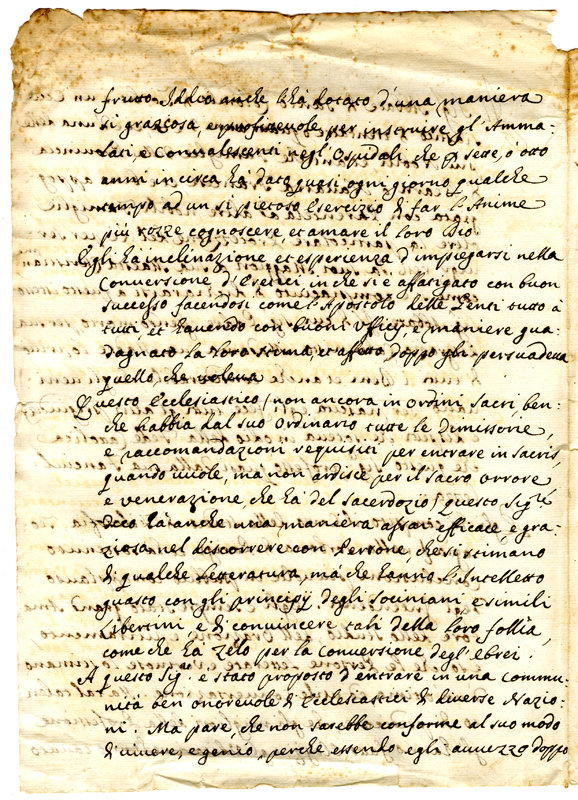 frutto. Iddio anche l'ha dotato d'una maniera
si graziosa, e profittevole per instruire gl'Amma-
lati, e Convalescenti negl'Ospidali, che p sette, ò otto
anni in circa ha dato quasi ogni giorno qualche
tempo ad un si pietoso Esercizio di far l'Anime
più rozze cognoscere, et amare il loro Dio
Egli ha inclinazione et esperienza d'impiegarsi nella
Conversione d'Eretici, in che si è affatigato con buon
successo facendosi come l'Apostolo delle Genti tutto à
tutti, et havendo con buoni Vfficij e maniere gua-
dagnato la loro stima, et affetto doppo gli persuadeva
quello che voleva
Questo Ecclesiastico (non ancora in ordini sacri, ben-
che habbia dal suo ordinario tutte le dimissorie,
e raccomandazioni requisiti per entrare in sacris,
quando vuole, ma non ardisce per il sacro orrore
e venerazione, che ha del sacerdozio) questo Sigre
dico hà anche una maniera assai efficace, e gra-
ziosa nel discorrere con Persone, che si stimano
di qualche letteratura, mà che hanno l'Intelletto
guasto con gli principij degli Sociniani, e simili
Libertini, e di convincere tali della loro follia,
come che ha zelo per la conversione degl'ebrei.
A questo Sigre è stato proposto d'entrare in una commu-
nità ben onorevole di Ecclesiastici di diverse Nazio-
ni. Mà pare, che non sarebbe conforme al suo modo
di vivere, e genio, perche essendo egli avvezzo doppo